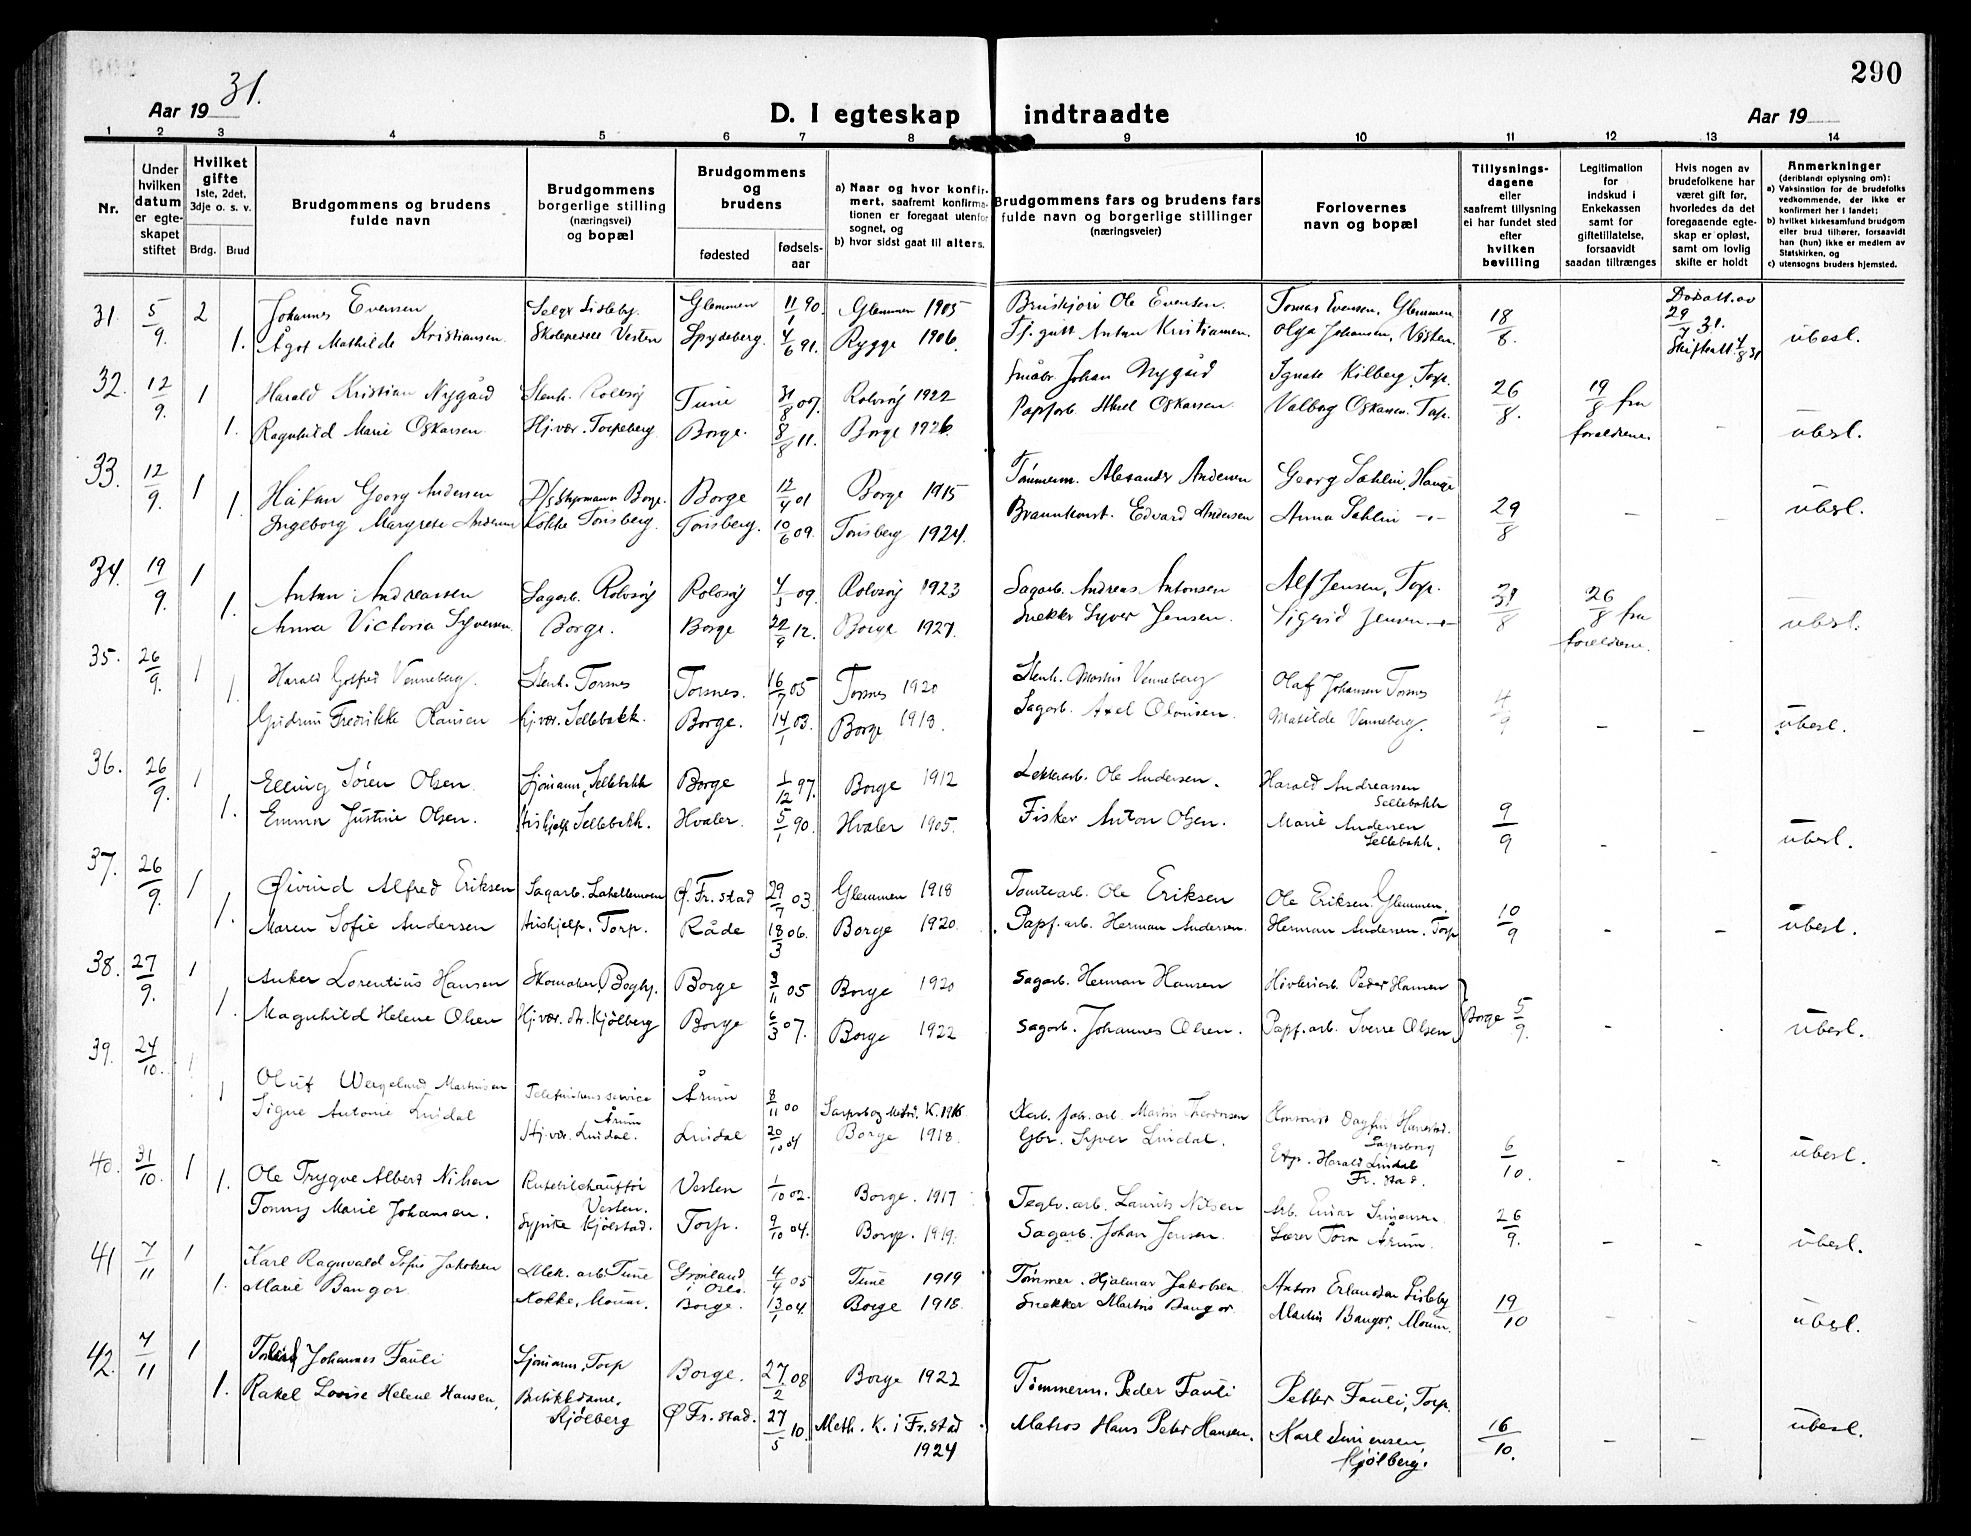 290
Aar 1931.
D. I egteskap indtraadte
Aar 19
1 2 3 4 5 6 7 8 9 10 11 12 13 14
Nr.
Under hvilken datum er egteskapet stiftet
Hvilket gifte 1ste, 2det, 3dje o. s. v.
Brdg. Brud
Brudgommens og brudens fulde navn
Brudgommens borgerlige stilling (næringsvei) og bopæl
Brudgommens og brudens
fødested
fødselsaar
a) Naar og hvor konfirmert, saafremt konfirmationen er foregaat utenfor sognet, og
b) hvor sidst gaat til alters.
Brudgommens fars og brudens fars fulde navn og borgerlige stillinger (næringsveier)
Forlovernes navn og bopæl
Tillysningsdagene eller saafremt tillysning ei har fundet sted efter hvilken bevilling
Legitimation for indskud i Enkekassen samt for giftetillatelse, forsaavidt saadan tiltrænges
Hvis nogen av brudefolkene har været gift før, hvorledes da det foregaaende egteskap er opløst, samt om lovlig skifte er holdt
Anmerkninger (deriblandt oplysning om):
a) Vaksinstion for de brudefolks vedkommende, der ikke er konfirmert her i landet;
b) hvilket kirkesamfund brudgom eller brud tilhører, forsaavidt han (hun) ikke er medlem av Statskirken, og
c) utensogns bruders hjemsted.
31. 5/9. 2 Johannes Evensen Glemmen 11/1 90. Glemmen 1905 Ole Evensen Tomas Evensen, Glemmen 18/8. 29/7 31.
1. Ågot Mathilde Kristiansen Vesten Spydeberg. 4/6 91. Rygge 1906. Anton Kristiansen. Olga Johansen, Vesten. ubesl.
32. 12/9. 1 Harald Kristian Nygård Rolvsøy Tune 31/8 07. Rolvsøy 1922 Småbr. Johan Nygård Ignate Kilberg, Torp. 26/8. 19/8 fra
1. Ragnhild Marie Oskarsen Hj.vær. Torpeberg Borge. 8/8 11. Borge 1926. Papfarb. Aksel Oskarsen Valborg Oskarsen. Torp. foreldrene. - ubesl.
33. 12/9. 1 Håkan Georg Andersen Borge. Borge 12/4 01 Borge 1915 Tømmerm. Alexander Andersen Georg Sahlin, Hauge
1. Ingeborg Margrete Andersen Kokke Tønsberg. Tønsberg. 10/6 09. Tønsberg 1924. Edvard Andersen Anna Sahlin -"- 29/8 - - ubesl.
34. 19/9. 1 Anton Andreassen Sagarb. Rolvsøy Rolvsøy 4/5 09. Rolvsøy 1923 Sagarb. Andreas Antonsen Alf Jensen, Torp. 26/8 fra
1. Anna Victoria Syversen Borge. Borge 22/9 12. Borge 1927. Snekker Syver Jensen Sigrid Jensen -"- foreldrene. ubesl.
35. 26/9. 1 Harald Gotfred Venneberg. Stenh. Torsnes Torsnes. 16/7 05 Torsnes 1920 Stenh. Martin Venneberg Olaf Johansen Torsnes
1. Gudrun Fredrikke Olausen Hj.vær. Sellebakk. Borge. 14/1 03. Borge 1918. Sagarb. Axel Olausen. Matilde Venneberg. 4/9 - - ubesl.
36. 26/9. 1 Elling Søren Olsen Sjømann, Sellebakk Borge 1/12 97. Borge 1912 Lekterarb. Ole Andersen. Harald Andreassen Sellebakk
1. Emma Justine Olsen. Hushjelp Sellebakk. Hvaler. 5/1 90. Hvaler 1905. Fisker Anton Olsen. Marie Andersen Sellebakk. 9/9 - - ubesl.
37. 26/9. 1 Øivind Alfred Eriksen Sagarb. Ø. Fr.stad 29/7 03. Glemmen 1918 Tomtearb. Ole Eriksen Ole Eriksen. Glemmen.
1. Maren Sofie Andersen Hushjelp. Torp. Råde 18/3 06. Borge 1920. Papf.arb. Herman Andersen. Herman Andersen. Torp 10/9 - - ubesl.
38. 27/9. 1 Anker Lorentius Hansen Skomaker, Borge 3/11 05 Borge 1920 Sagarb. Herman Hansen Høvleriarb. Peder Hansen
1. Magnhild Helene Olsen Kjølberg Borge 6/3 07. Borge 1922 Sagarb. Johannes Olsen. Papf.arb. Sverre Olsen Borge 5/9. - - ubesl.
39. 24/10. 1 Oluf Wergeland Martinsen Årum Årum 8/11 00 Sarpsborg Metod. K. 1916 Martin Thoresen Sarpsborg
1 Signe Antonie Lindal Hj.vær. Lindal. Lindal 20/10 04 Borge 1918. Gbr. Syver Lindal. Harald Lindal Fr.stad. 6/10. - - ubesl.
40. 31/10. 1 Ole Trygve Albert Nilsen Rutebilchauffør Vesten. Vesten 1/10 02. Borge. 1917 Teglv.arb. Laurits Nilsen Arb. Einar Simensen
1. Tonny Marie Johansen. Sypike Kjølstad. Torp. 9/10 04. Borge. 1919. Sagarb. Johan Jensen. Lærer Årum. 26/9. - - ubesl.
41 7/11 1 Karl Ragnvald Sofus Jakobsen Mek. arb. Tune Grønland i Oslo. 4/4 05 Tune 1919 Tømmer. Hjalmar Jakobsen Anton Erlandsen Lisleby
1. Marie Bangor Kokke, Moum. Borge. 13/1 04. Borge 1918. Snekker Martin Bangor. Martin Bangor, Moum. 19/10 - - ubesl.
42. 7/11 1 Johannes Fauli Sjømann, Torp Borge. 27/2 08 Borge 1922 Tømmerm. Peder Fauli Petter Fauli, Torp.
1. Rakel Lovise Helene Hansen, Butikkdame, Kjølberg Ø Fr.stad. 27/5 10. Meth. K. i Fr.stad 1924 Matros Hans Peter Hansen. Karl Simensen, Kjølberg. 16/10. - - ubesl.